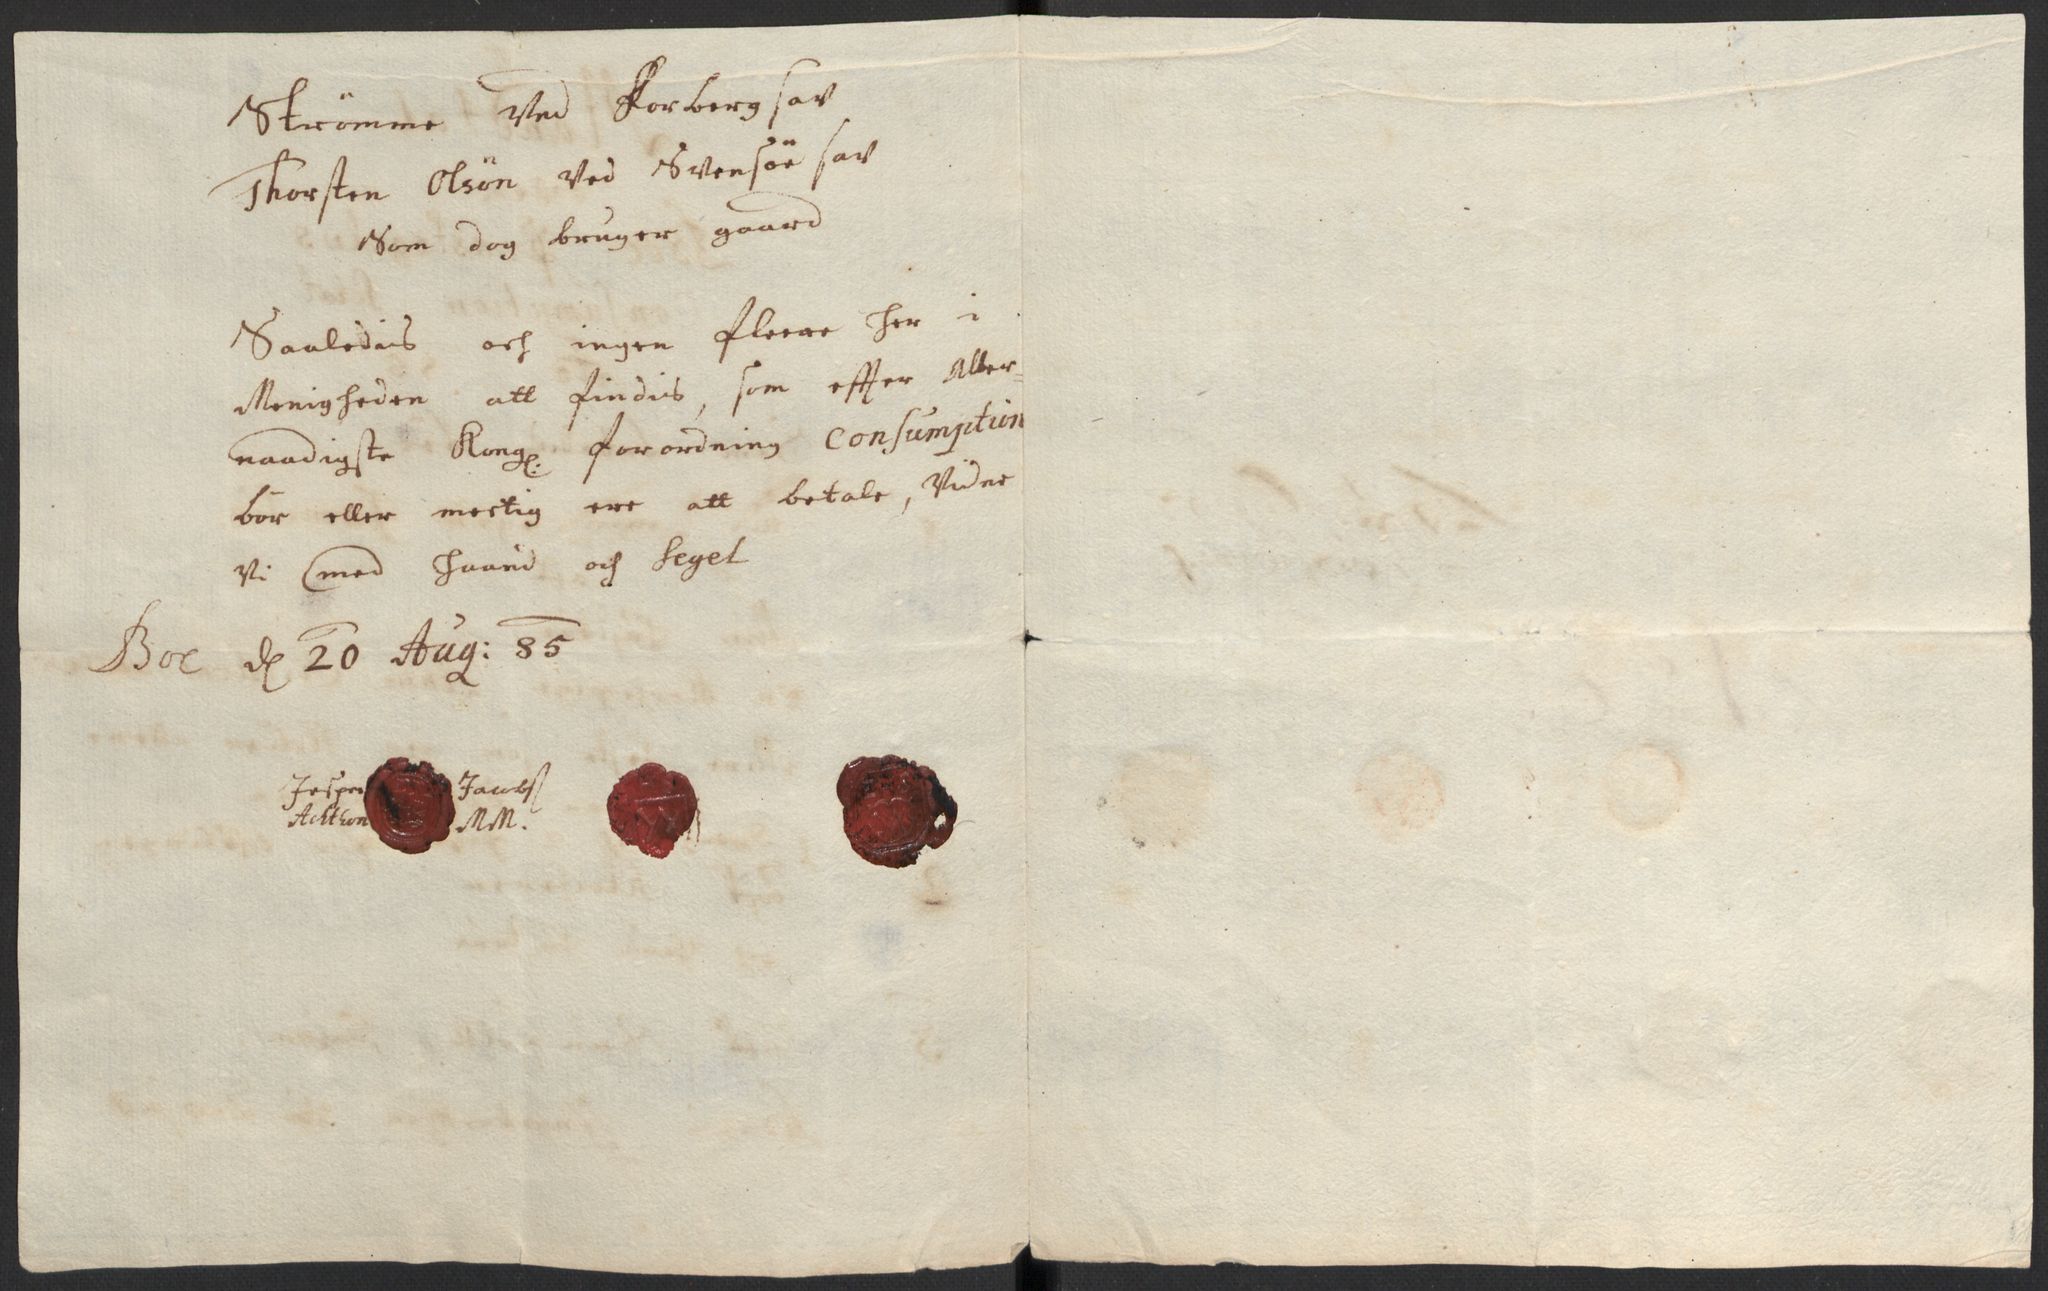 Strömme Ved Korberg sav
Thorsten Olsön Ved Svensöe sav
Som dog bruger gaard
Saaledis och ingen fleere her i
Menigheden att findis, som effter Aller-
naadigste Kongl: forordning Consumption
bör eller mectig ere att betale, Vidne
Vi med haand och Segel
Boe d 20 Aug: 85
Jesper Jacobs
Achthon MM.